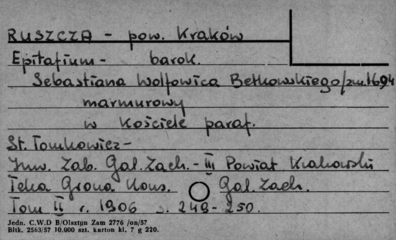 RUSZCZA - pow. Kraków
Epitafium - barok.
Sebastiana Wolfowica Betkowskiego /zm. 1694
marmurowy
w kościele paraf.
St. Tomkowicz -
Inw. Zab. Gal. Zach. - III Powiat Krakowski
Teka Grona Kons. Gal. Zach.
Tom II r. 1906 s. 248-250.
Jedn. C.W.D B/Olsztyn Zam 2776 /on/57
Bltk. 2563/57 10.000 szt. karton kl. 7 g 220.